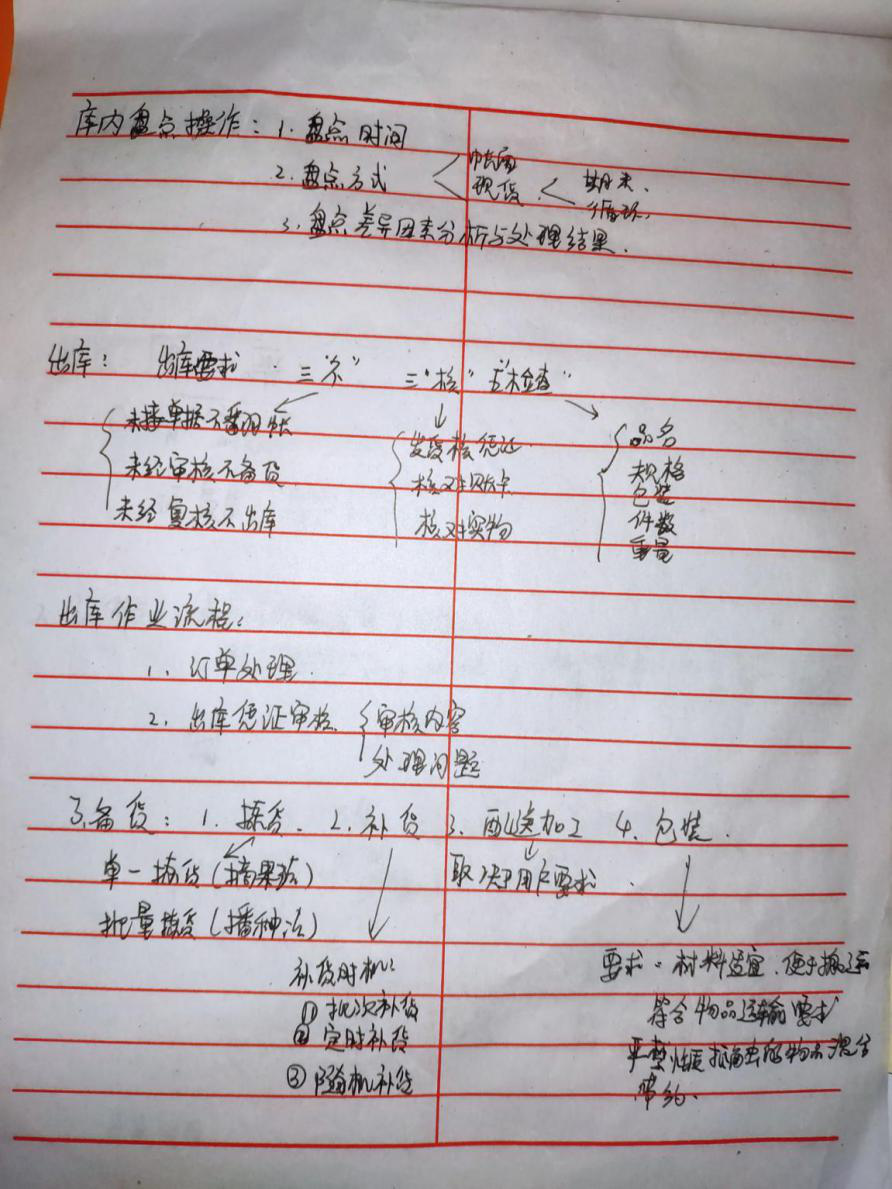 库内盘点操作：1. 盘点时间
2. 盘点方式 帐面
现货 期末、
循环、
3. 盘点差异因素分析与处理结果.
出库： 出库要求 三“不” 三“核” 五“检查”
未接单据不翻帐 发货核凭证 品名
未经审核不备货 核对账卡 规格
未经复核不出库 核对实物 包装
件数
重量
出库作业流程：
1. 订单处理.
2. 出库凭证审核 审核内容
处理问题
3.备货：1. 拣货. 2. 补货 3. 配送加工 4. 包装.
单一拣货(摘果法) 取决于用户要求.
批量拣货(播种法)
补货时机： 要求. 材料适宜. 便于搬运
①批次补货 符合物品运输要求
②定时补货
③随机补货 严禁性质抵触 物 混合